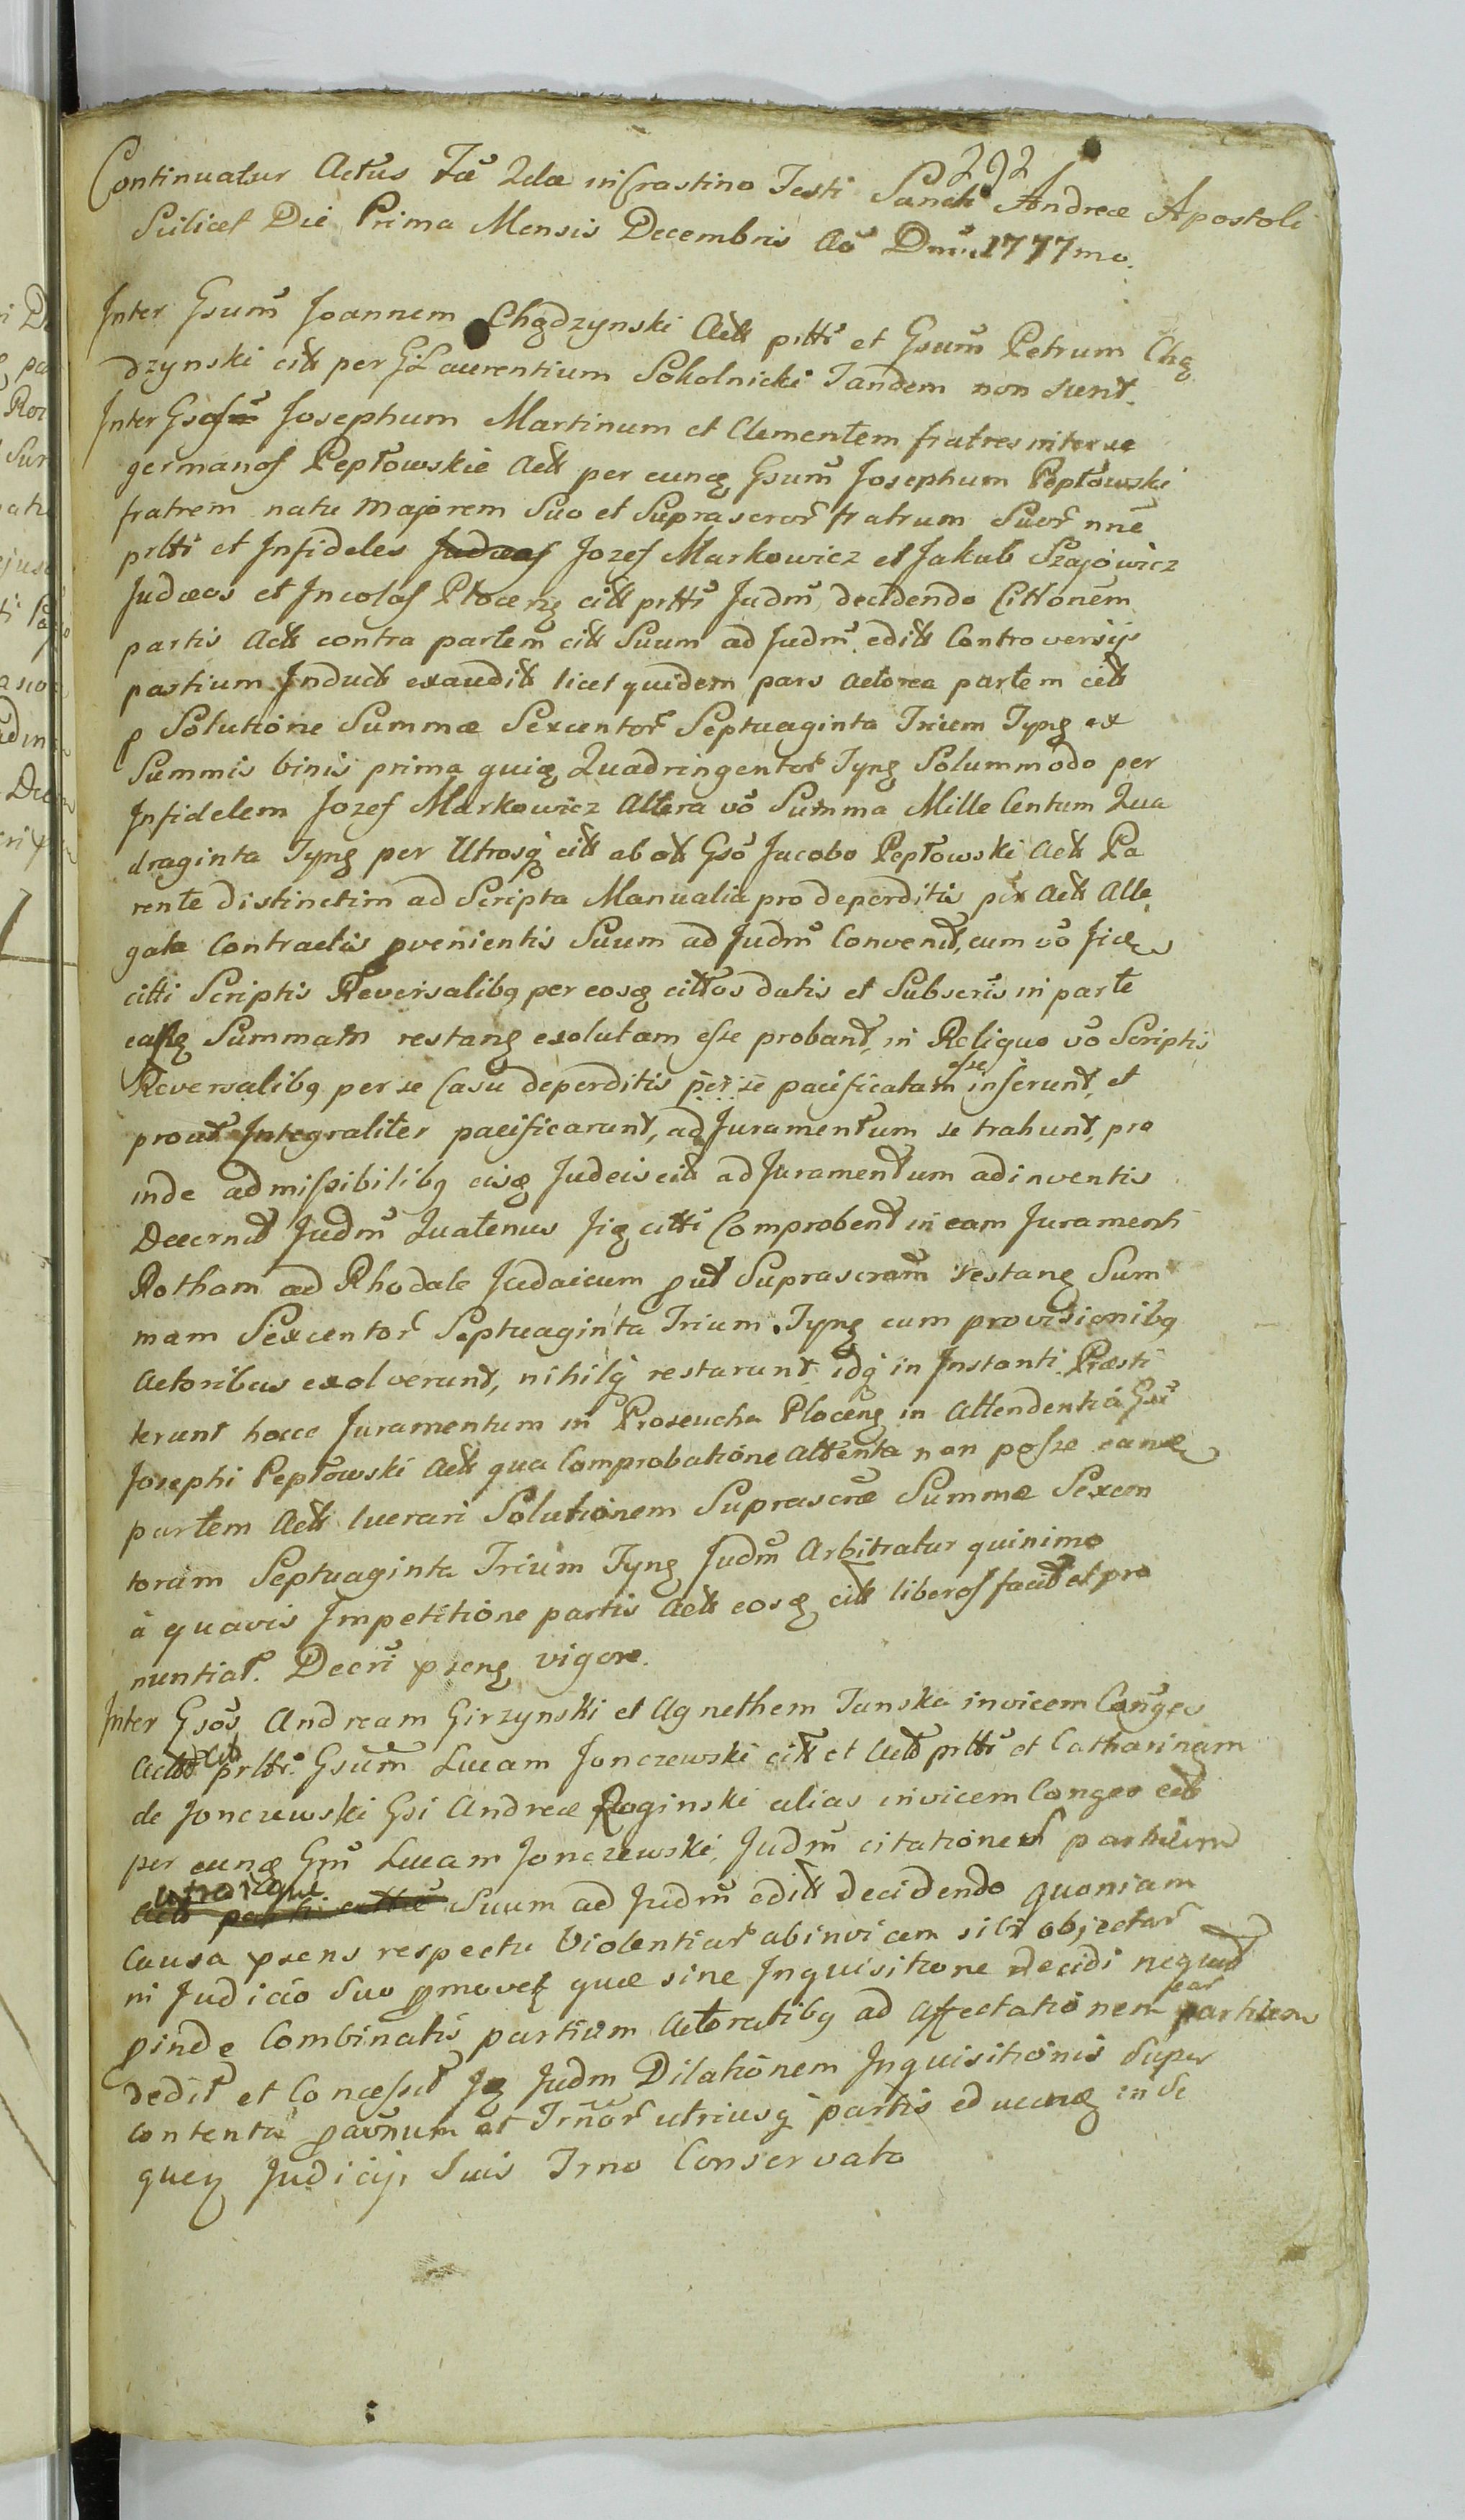 292
Continuatur Actus Fæ 2dæ in Crastino Festi Sancti Andreæ Apostoli
Scilicet Die Prima Mensis Decembris Aō Dnī 1777mo.
Inter Gsum Joannem Chądzynski Actt prtti et Gsum Petrum Chą
dzynski citt per G: Laurentium Sokolnicki Tandem non sunt.
Inter Gsos Josephum Martinum et Clementem fratres inter se
germanos Pepłowskie Actt per eunq Gsum Josephum Pepłowski
fratrem natu Majorem Suo et Suprascror fratrum Suor nne
prtti et Infideles Judæos Jozef Markowicz et Jakub Szajowicz
Judæos et Incolas Płoceng citt prtti Judm decidendo Cittonem
partis Actt contra partem citt Suum ad Judm editt Controversijs
partium Induct exauditt licet quidem pars actorea partem citt
p Solutione Summæ Sexcentor Septuaginta Trium Tyng ex
Summis binis prima quiq Quadringentor Tyng Solummodo per
Infidelem Jozef Markowicz Altera vō Summa Mille Centum Qua
draginta Tyng per Utrosq citt ab ott Gsō Jacobo Pepłowski Actt Pa
rente distinctim ad Scripta Manualia pro deperditis per Actt Alle
gata Contractis pvenientis Suum ad Judm Convenit, cum vō Jidæ
citti Scriptis Reversalibq per eosq cittos datis et Subscris in parte
easq Summam restang exolutam esse probant, in Reliquo vō Scriptis
Reversalibq per se Casu deperditis per se pacificatam esse inferunt, et
prout Integraliter pacificarunt, ad Juramentum se trahunt, pro
inde admissibilibq eisq Judeis citt ad Juramentum adinventis
Decernit Judm Quatenus Jiq citti Comprobent in eam Juramenti
Rotham ad Rhodale Judaicum put Suprascram restang Sum
mam Sexcentor Septuaginta Trium Tyng cum provisionibq
Actoribus exolverunt, nihilq restarunt idq in Instanti Præsti
terunt hocce Juramentum in Proseucha Ploceng in Attendentia Gsi
Josephi Pepłowski Actt qua Comprobatione attenta non posse eanq
partem Actt lucrari Solutionem Suprascræ Summæ Sexcen
torum Septuaginta Trium Tyng Judm Arbitratur quinimo
à quavis Impetitione partis Actt eosq citt liberos facit et pro
nuntiat. Decri pseng vigore.
Inter Gsos Andream Girzynski et Agnethem Tanska invicem Conges
Actt citt prtti. Gsum Lucam Jonczewski citt et Actt prtti et Catharinam
de Jonczewski Gsi Andreæ Roginski alias invicem Conges citt
per eunq Gm Lucam Jonczewski, Judm citationes partium
utrarque
Actt parti cittæ Suum ad Judm editt decidendo quoniam
Causa psens respectu Violentiar abinvicem sibi objectar
in Judicio Suo pmovet quæ sine Inquisitione decidi nequit
pinde Combinatis partium Actoratibq ad affectationem ear partium
dedit et Concessit Jq Judm Dilationem Inquisitionis super
contenta et Trnor utriusq partis educenq in Se
queq Judicijs Suis Trno Conservato